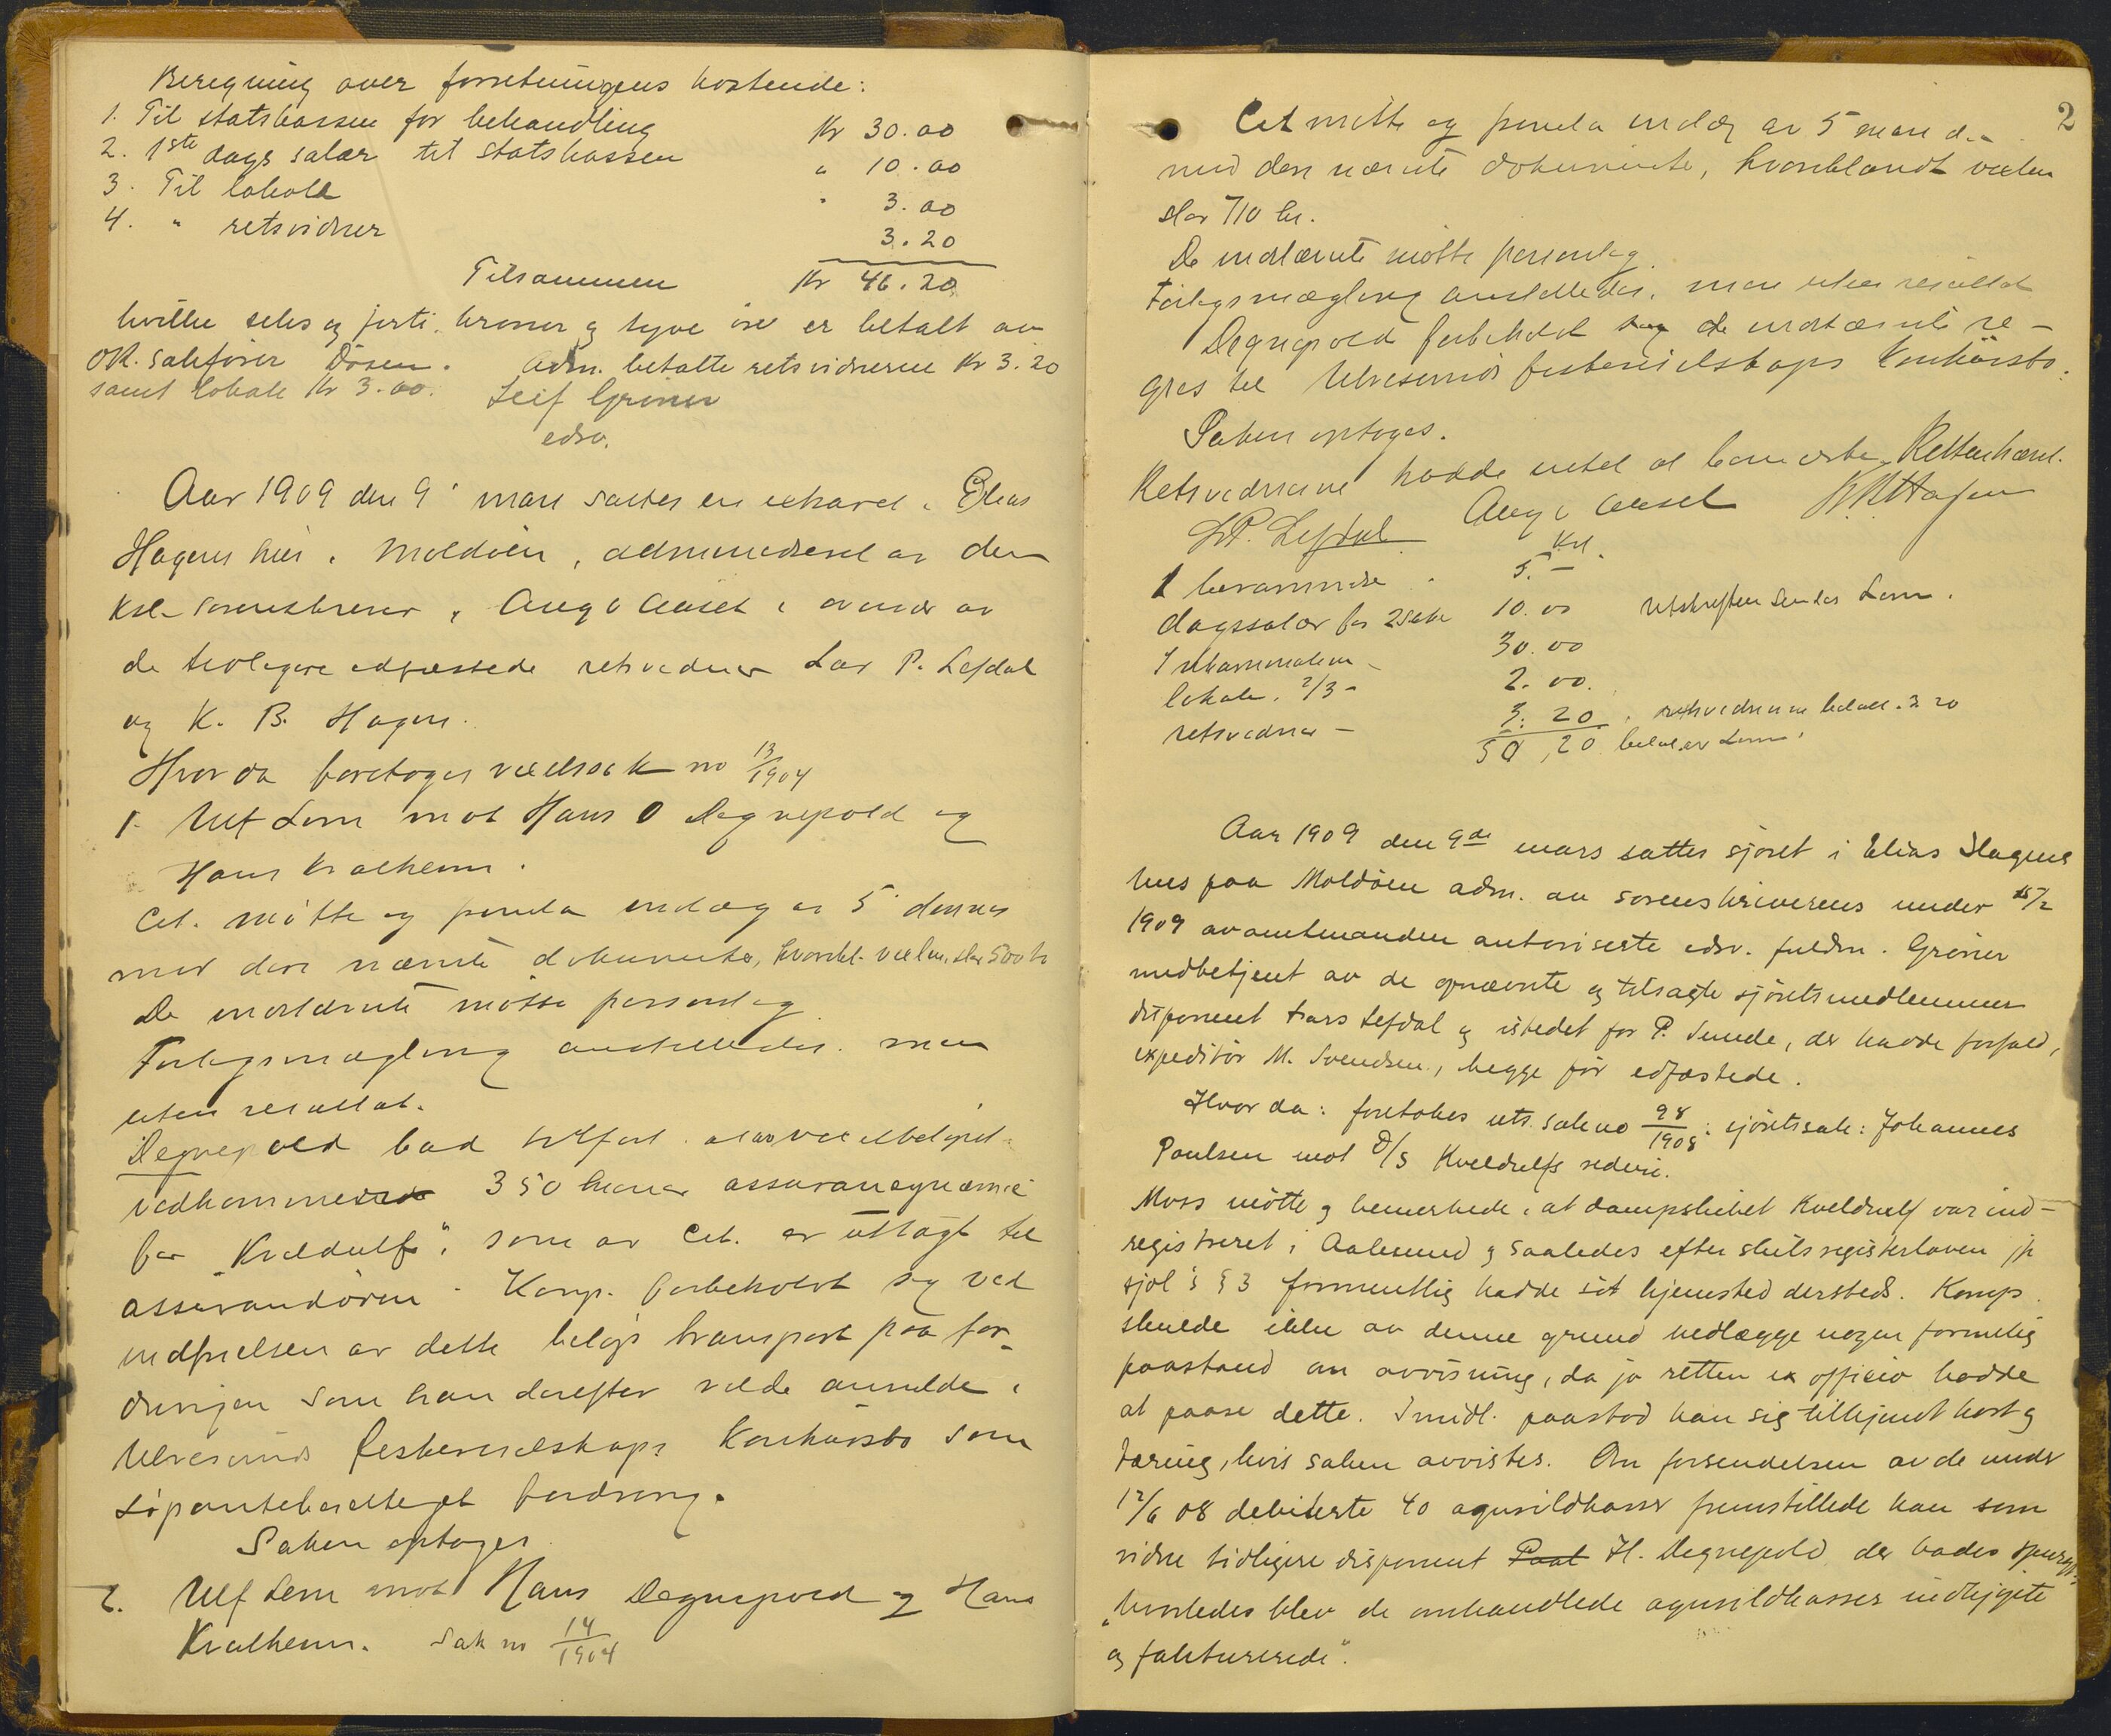 Beregning over forretningens kostende:
1. Til statskassen for behandling Kr 30.00
2. 1ste dags salær til statskassen " 10.00
3. Til lokale " 3.00
4. " retsvidner 3.20
Tilsammen Kr 46.20
hvilke seks og førti kroner og tyve øre er betalt av
OR. sakfører Døsen. Adm. betalte retsvidnerne Kr 3.20
samt lokale Kr 3.00. Leif Grøner
edsv.
Aar 1909 den 9 mars sattes en ekstraret i Elias
Hagens hus i Moldøen, administreret av den
Kst. sorenskriver, Aug. Aaset i overvær av
de tidligere edfæstede retsvidner Lar P. Lefdal
og K. B. Hagen.
Hvor da foretoges vexelsak no 13/1909
1. Ulf Lem mot Hans O Degnepold og
Hans Kvalheim.
Cit. møtte og indlæg av 5 dennes
med deri nævnte dokumenter, hvorbl. vexlen, stor 500 kr
De indstævnte møtte personlig.
Forligsmægling anstilledes. men
uten resultat.
Degnepold bad tilført. at av vexelbeløpet
vedkommer 350 kroner assurancepræmie
for "Kveldulf", som av Cit. er utlagt til
assurandøren. Komp. forbeholdt sig ved
indfrielsen av dette beløp transport paa for-
dringen som han derefter vilde anmelde i
Ulvesunds fiskeriselskaps konkursbo som
søpanteberettiget fordring.
Saken optoges
2. Ulf Lem mot Hans Degnepold og Hans
Kvalheim. Sak no 14/1909
2
Cit møtte og indlæg av 5 mars d.a
med deri nævnte dokumenter, hvoriblandt vexlen
stor 710 kr.
De indstævnte møtte personlig.
Forligsmægling anstilledes, men uten resultat
Degnepold forbeholdt sig de indstævnte re-
gres til Ulvesunds fiskeriselskaps konkursbo.
Saken optoges.
Retsvidnerne hadde intet at bemerke. Retten hævet.
L.P. Lefdal Aug Aaset K B Hagen
Kst.
1 berammelse 5. –
dagssalær for 2 saker 10.00 Utskriften sendes Lem.
30.00
lokale. 2/3 – 2.00.
retsvidner – 3.20. retsvidnerne betalt. 3 20
50,20 betalt av Lem.
Aar 1909 den 9de mars sattes sjøret i Elias Hagens
hus paa Moldøen adm. av sorenskriverens under 15/2
1909 av amtmanden autoriserte edsv. fuldm. Grøner
medbetjent av de opnævnte og tilsagte sjøretsmedlemmer
disponent Lars Lefdal og istedet for P. Sunde, der havde forfald,
expeditør M. Svendsen, begge før edfæstede.
Hvor da: foretokes uts. sak no 98/1908: sjøretssak: Johannes
Paulsen mot D/S Kveldulfs rederi.
Moss møtte og bemerkede, at dampskibet Kveldulf var ind-
registreret i Aalesund og saaledes efter skibsregisterloven jfr
sjøl's § 3 formentlig hadde sit hjemsted dersteds. Komp.
skulde ikke av denne grund nedlægge nogen formelig
paastand om avvisning, da jo retten ex officio hadde
at paase dette. Imidl. paastod han sig tilkjendt kost og
tæring, hvis saken avvistes. Om forsendelsen av de under
12/6 08 debiterte 40 agnsildkasser fremstillede han som
vidne tidligere disponent Paal H. Degnepold der bades spurgt,
"hvorledes blev de omhandlede agnsildkasser indkjøpte
og fakturerede".